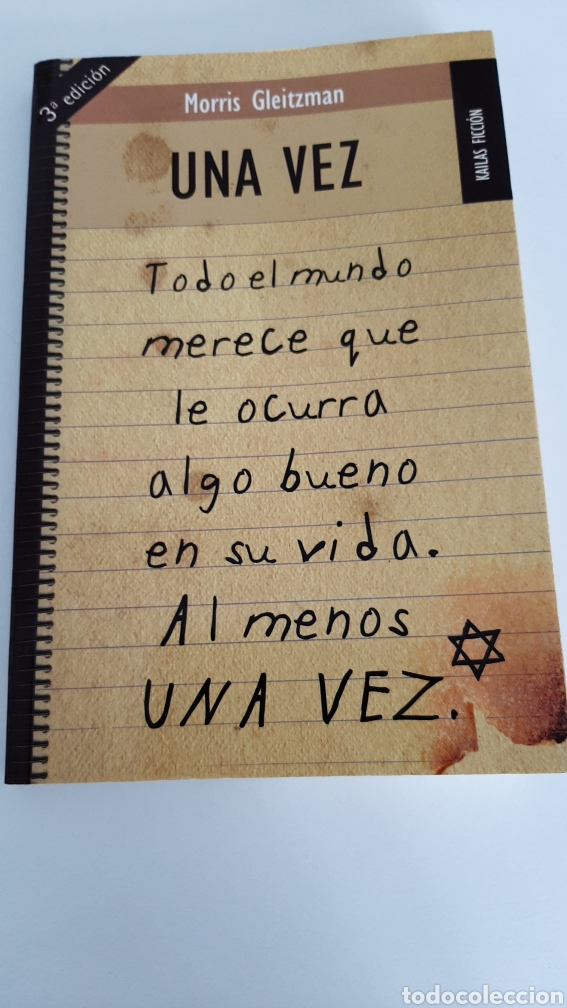 3ª edición
Morris Gleitzman
KAILAS FICCIÓN
UNA VEZ
Todo el mundo
merece que
le ocurra
algo bueno
en su vida.
Al menos
UNA VEZ.
todocoleccion